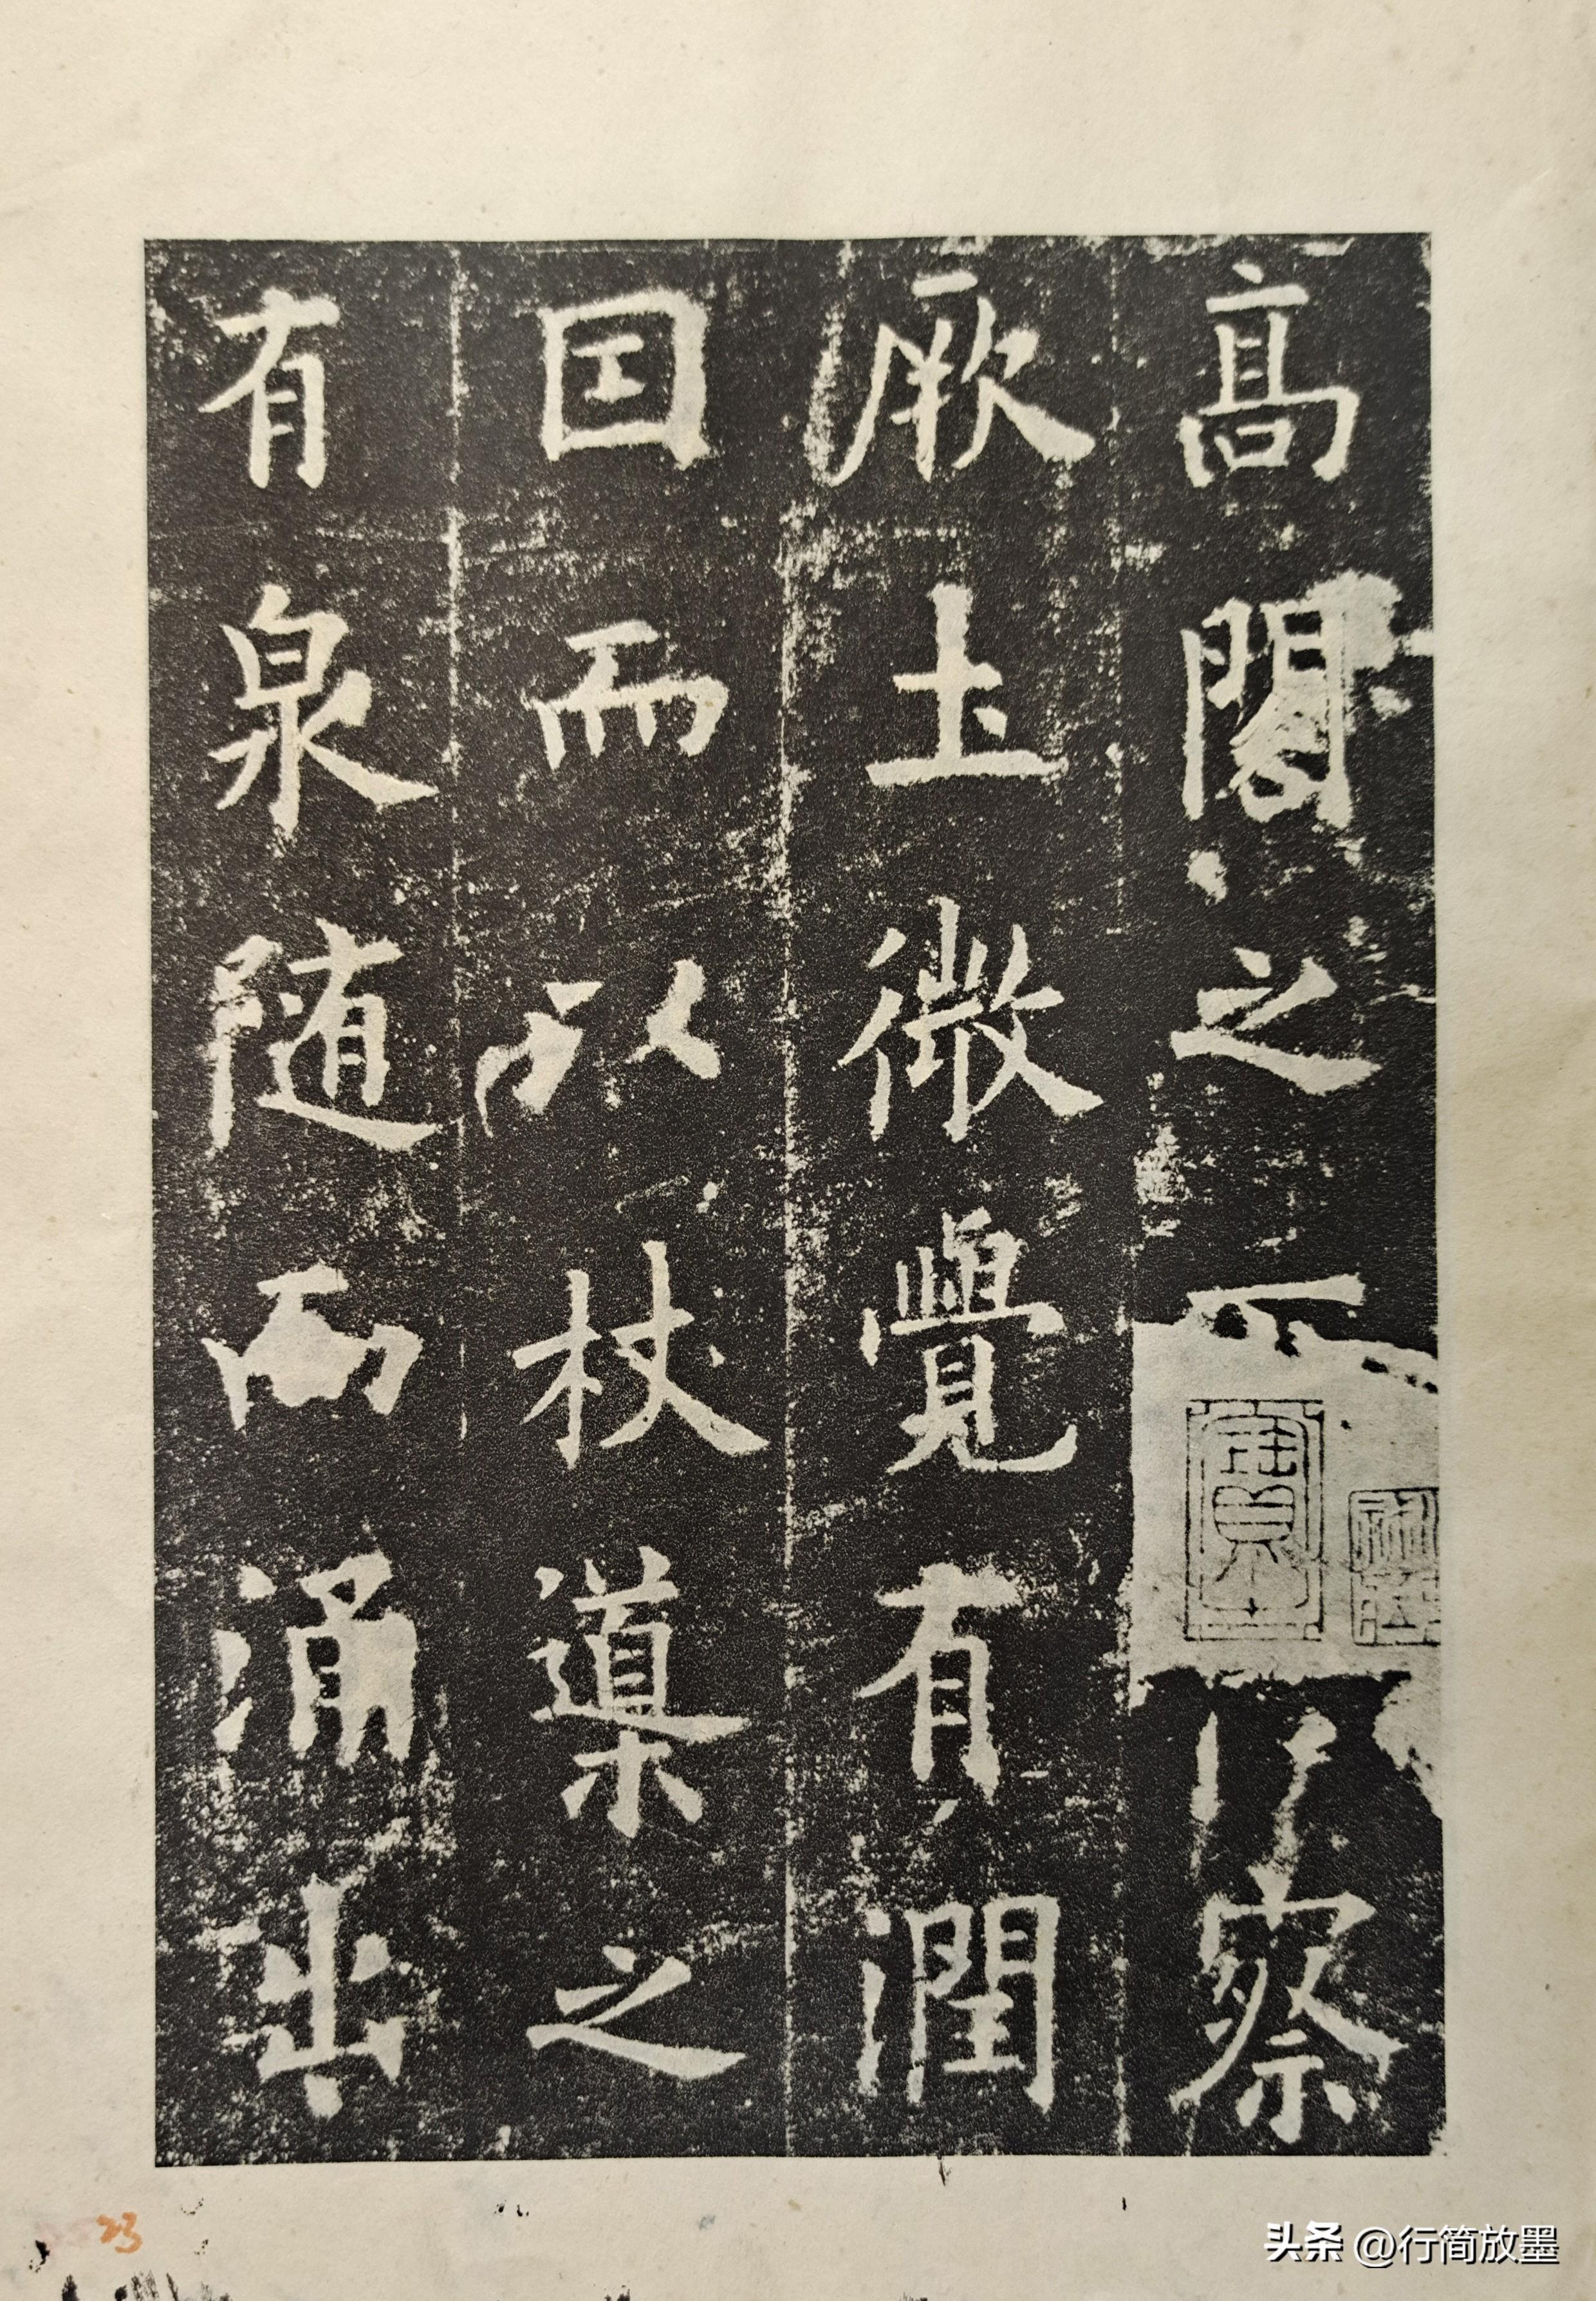 高閣之下
察
厥土微覺有潤
囙而以杖導之
有泉随而涌出
23
头条 @行简放墨